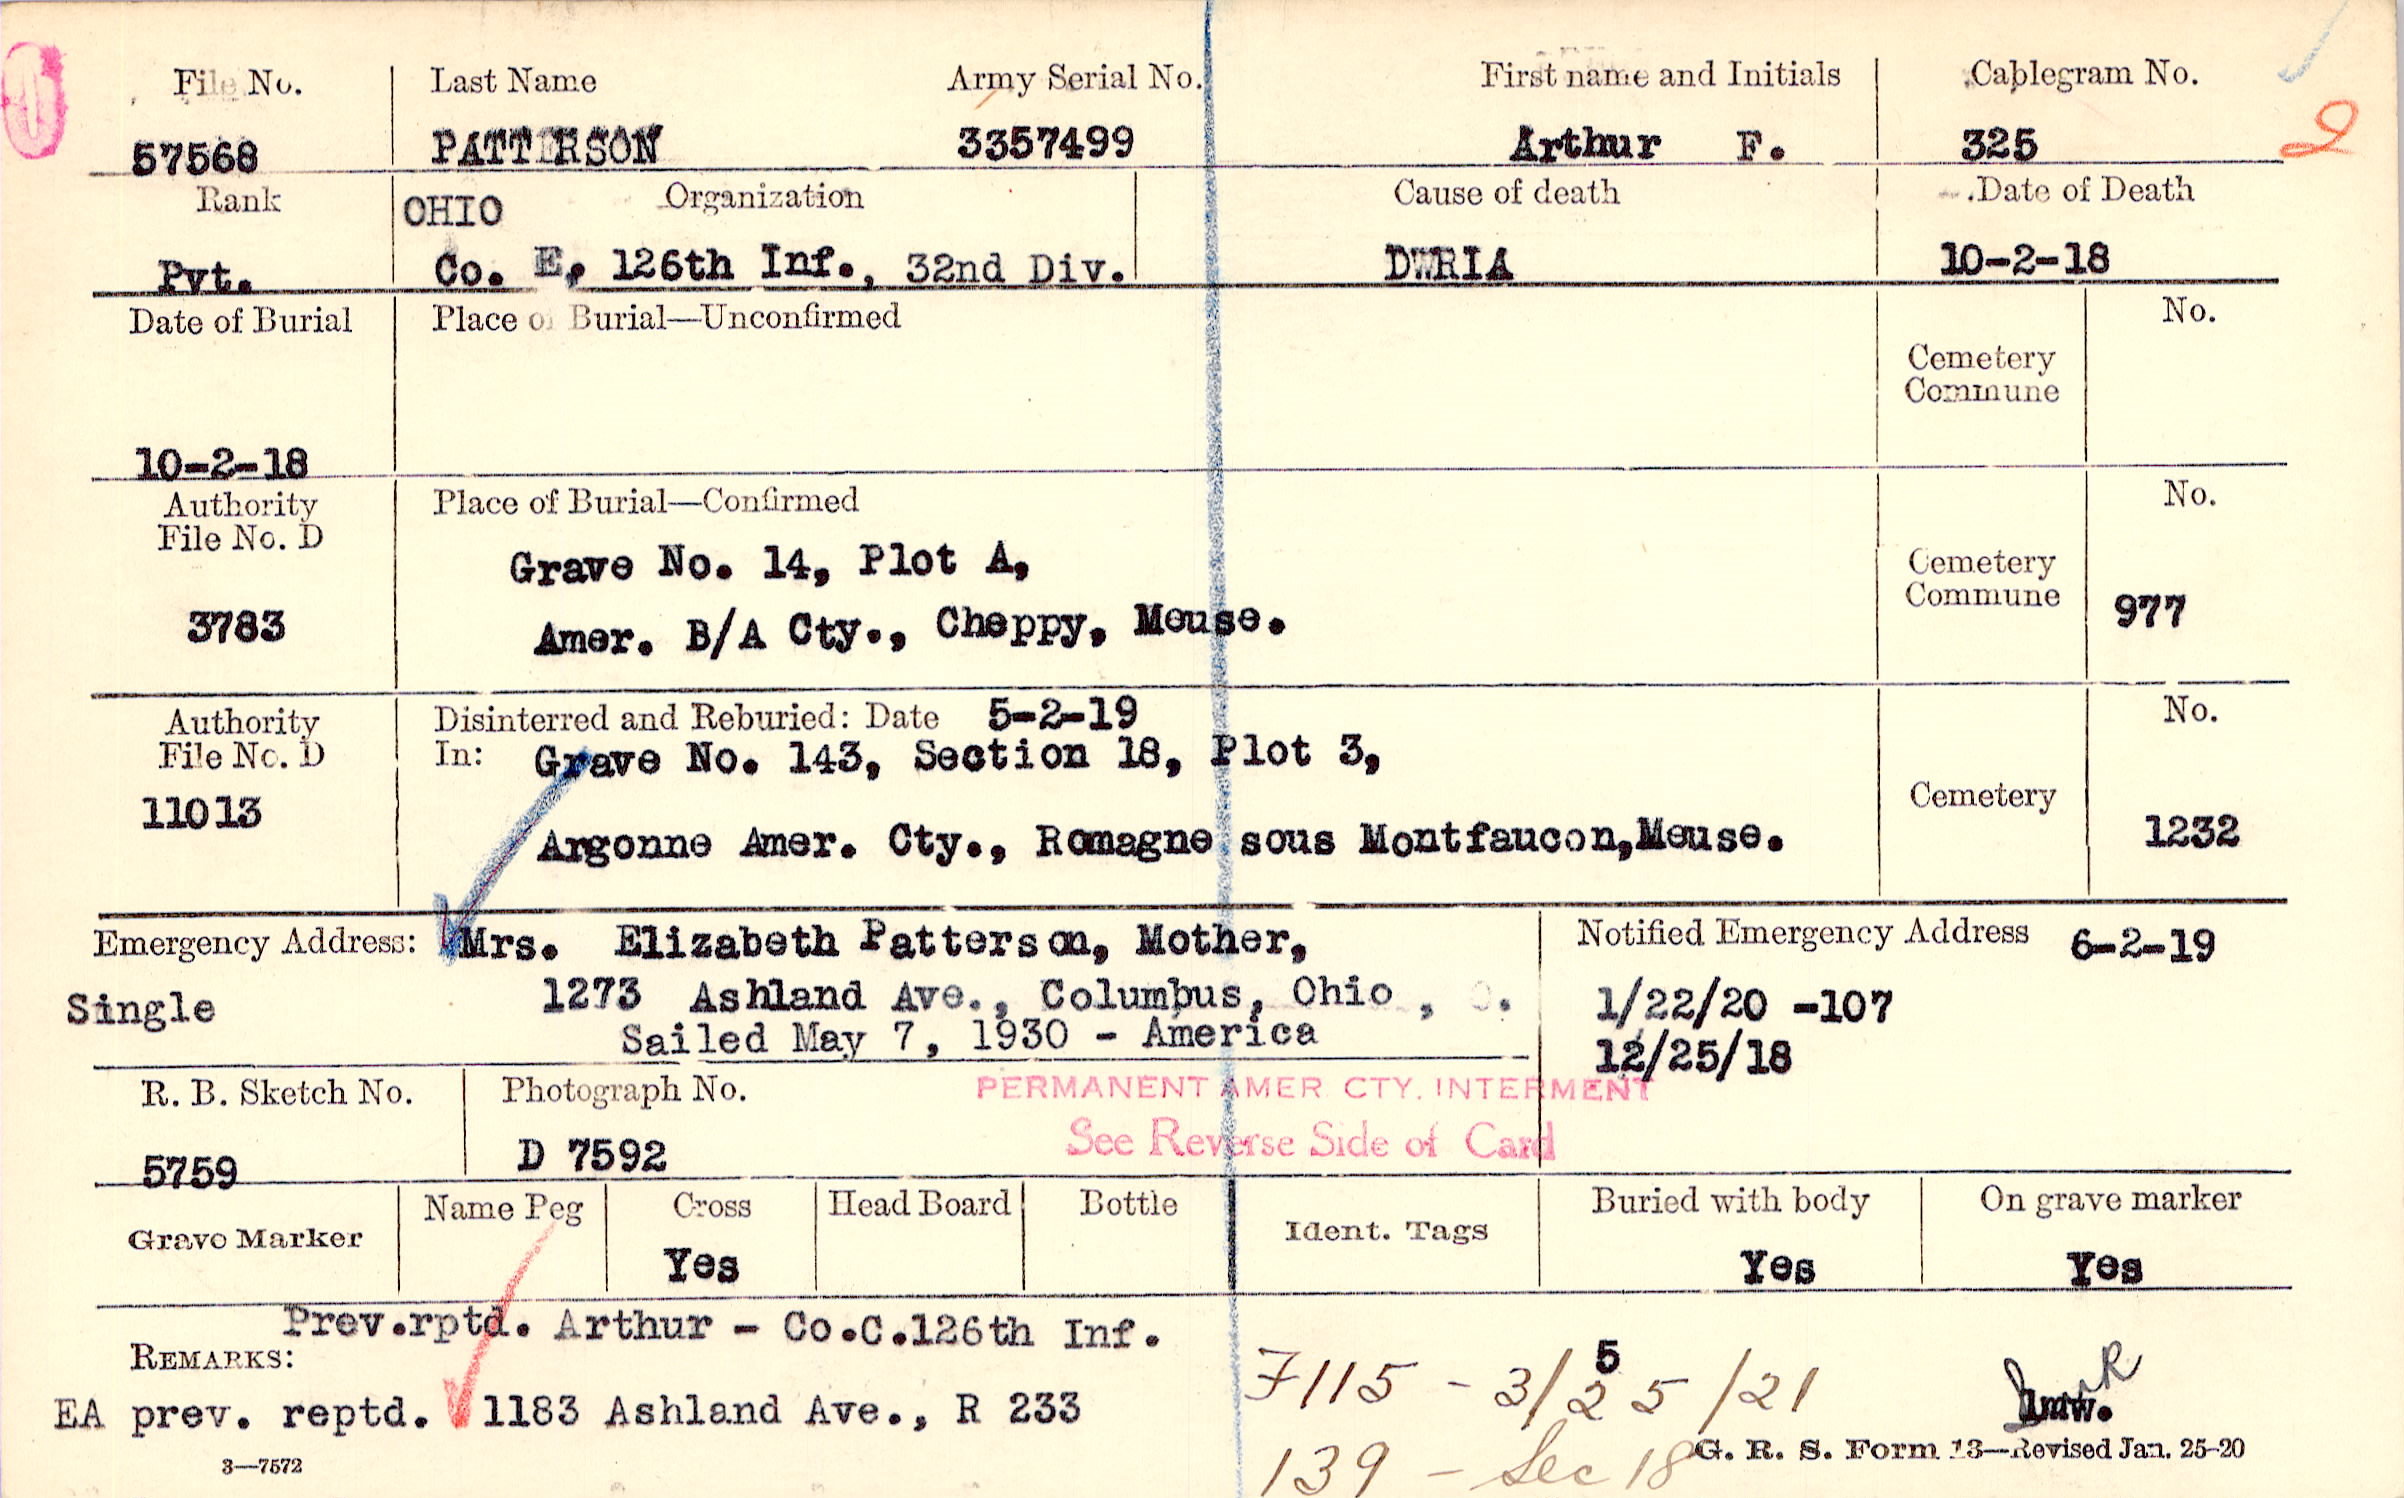 File No. Last Name Army Serial No. First name and Initials Cablegram No.
57568 PATTERSON 3357499 Arthur F. 325
2
Rank OHIO Organization Cause of death Date of Death
Pvt. Co. E, 126th Inf., 32nd Div. DWRIA 10-2-18
Date of Burial Place of Burial—Unconfirmed No.
Cemetery
Commune
10-2-18
Authority Place of Burial—Confirmed No.
File No. D
Grave No. 14, Plot A, Cemetery
Commune 977
3783 Amer. B/A Cty., Cheppy, Meuse.
Authority Disinterred and Reburied: Date 5-2-19 No.
File No. D In: Grave No. 143, Section 18, Plot 3,
11013 Cemetery
Argonne Amer. Cty., Romagne sous Montfaucon,Meuse. 1232
Emergency Address: Mrs. Elizabeth Patterson, Mother, Notified Emergency Address 6-2-19
Single 1273 Ashland Ave., Columbus, Ohio , 1/22/20 -107
Sailed May 7, 1930 - America 12/25/18
R. B. Sketch No. Photograph No. PERMANENT AMER CTY. INTERMENT
5759 D 7592 See Reverse Side of Card
Grave Marker Name Peg Cross Head Board Bottle Ident. Tags Buried with body On grave marker
Yes Yes Yes
Prev.rptd. Arthur - Co.C.126th Inf.
REMARKS:
EA prev. reptd. 1183 Ashland Ave., R 233
5
F115 - 3/25/21
139 - Sec 18
G. R. S. Form 13—Revised Jan. 25-20
3—7572